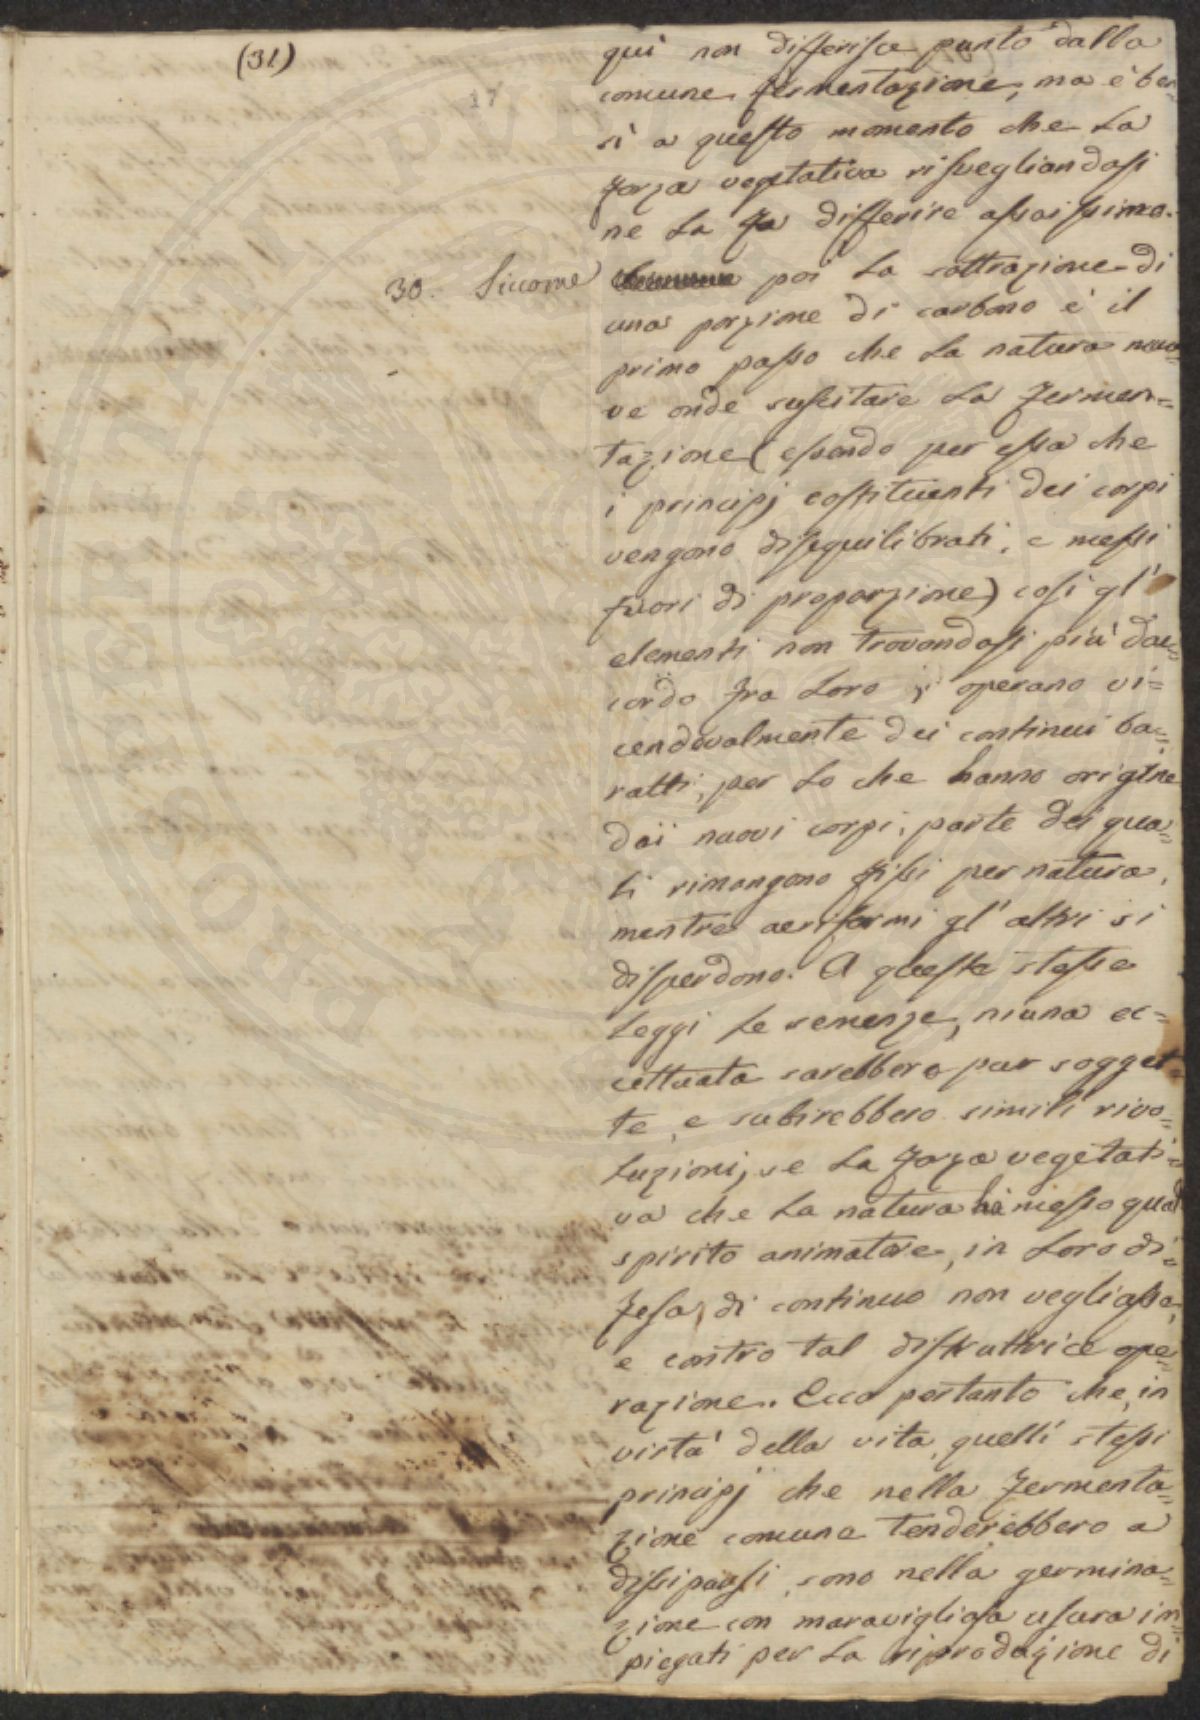 (31)
17
qui non differisce punto dalla
comune fermentazione, ma è ben-
sì a questo momento che la
forza vegetativa risvegliandosi
ne la fa differire assaissimo.
30. Siccome poi la sottrazione di
una porzione di carbono è il
primo passo che la natura muo=
ve onde suscitare la fermen=
tazione (essendo per essa che
i principj costituenti dei corpi
vengono disequilibrati, e messi
fuori di proporzione) così gl'
elementi non trovandosi più dac=
cordo fra loro, operano vi=
cendevolmente dei continui ba=
ratti, per lo che hanno origine
dei nuovi corpi, parte dei qua=
li rimangono fissi per natura,
mentre aeriformi gl' altri si
disperdono. A queste stesse
leggi le semenze, niuna ec=
cettuata sarebbero pur sogget=
te, e subirebbero simili rivo=
luzioni, se la forza vegetati=
va che la natura hà messo qual
spirito animatore, in loro di=
fesa, di continuo non vegliasse,
e contro tal distruttrice ope=
razione. Ecco pertanto che, in
virtà della vita, quelli stessi
principj che nella fermenta=
zione comune tenderebbero a
dissiparsi, sono nella germina=
zione con maravigliosa usura im=
piegati per la riproduzione di